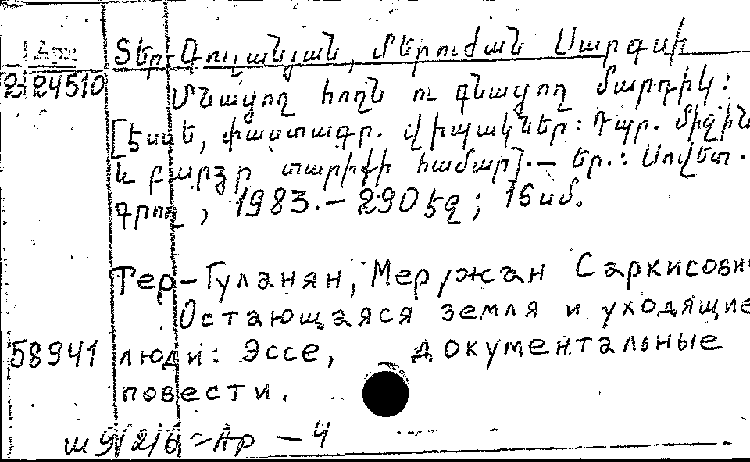 Տեր-Գուլանյան, Մերուժան Սարգսի
2124510
Մնացող հողն ու գնացող մարդիկ:
[Էսսե, փաստագր. վիպակներ: Դպր. միջին
և բարձր տարիքի համար].— Եր.: Սովետ.
գրող, 1983.— 290 էջ; 16 սմ.
Тер-Гуланян, Меружан Саркисович
Остающаяся земля и уходящие
58941 люди: Эссе, документальные
повести.